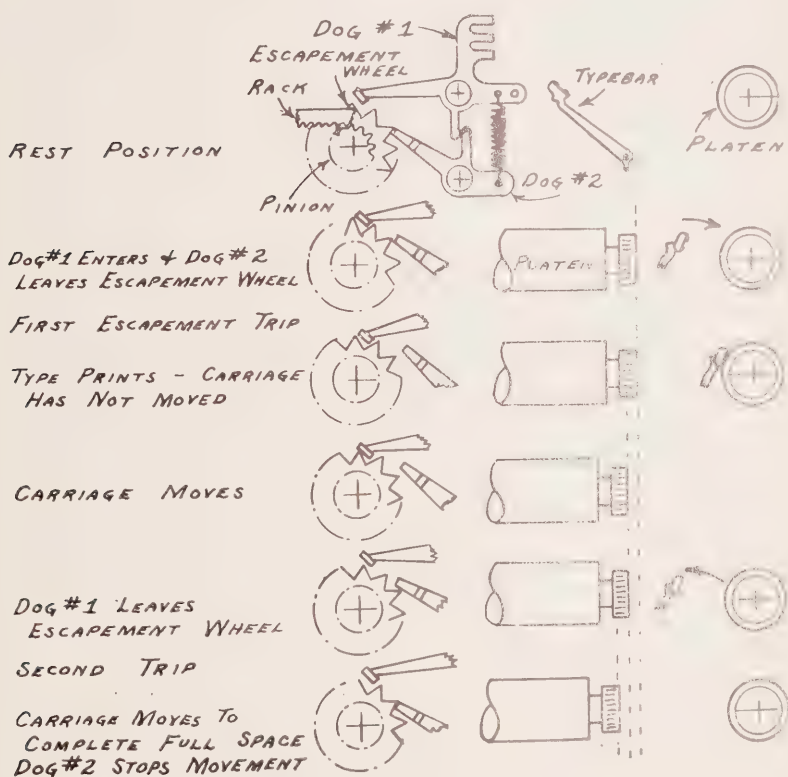 DOG #1
ESCAPEMENT
WHEEL
RACK
TYPEBAR
PLATEN
REST POSITION
PINION
DOG #2
DOG #1 ENTERS & DOG #2
LEAVES ESCAPEMENT WHEEL
PLATEN
FIRST ESCAPEMENT TRIP
TYPE PRINTS - CARRIAGE
HAS NOT MOVED
CARRIAGE MOVES
DOG #1 LEAVES
ESCAPEMENT WHEEL
SECOND TRIP
CARRIAGE MOVES TO
COMPLETE FULL SPACE
DOG #2 STOPS MOVEMENT